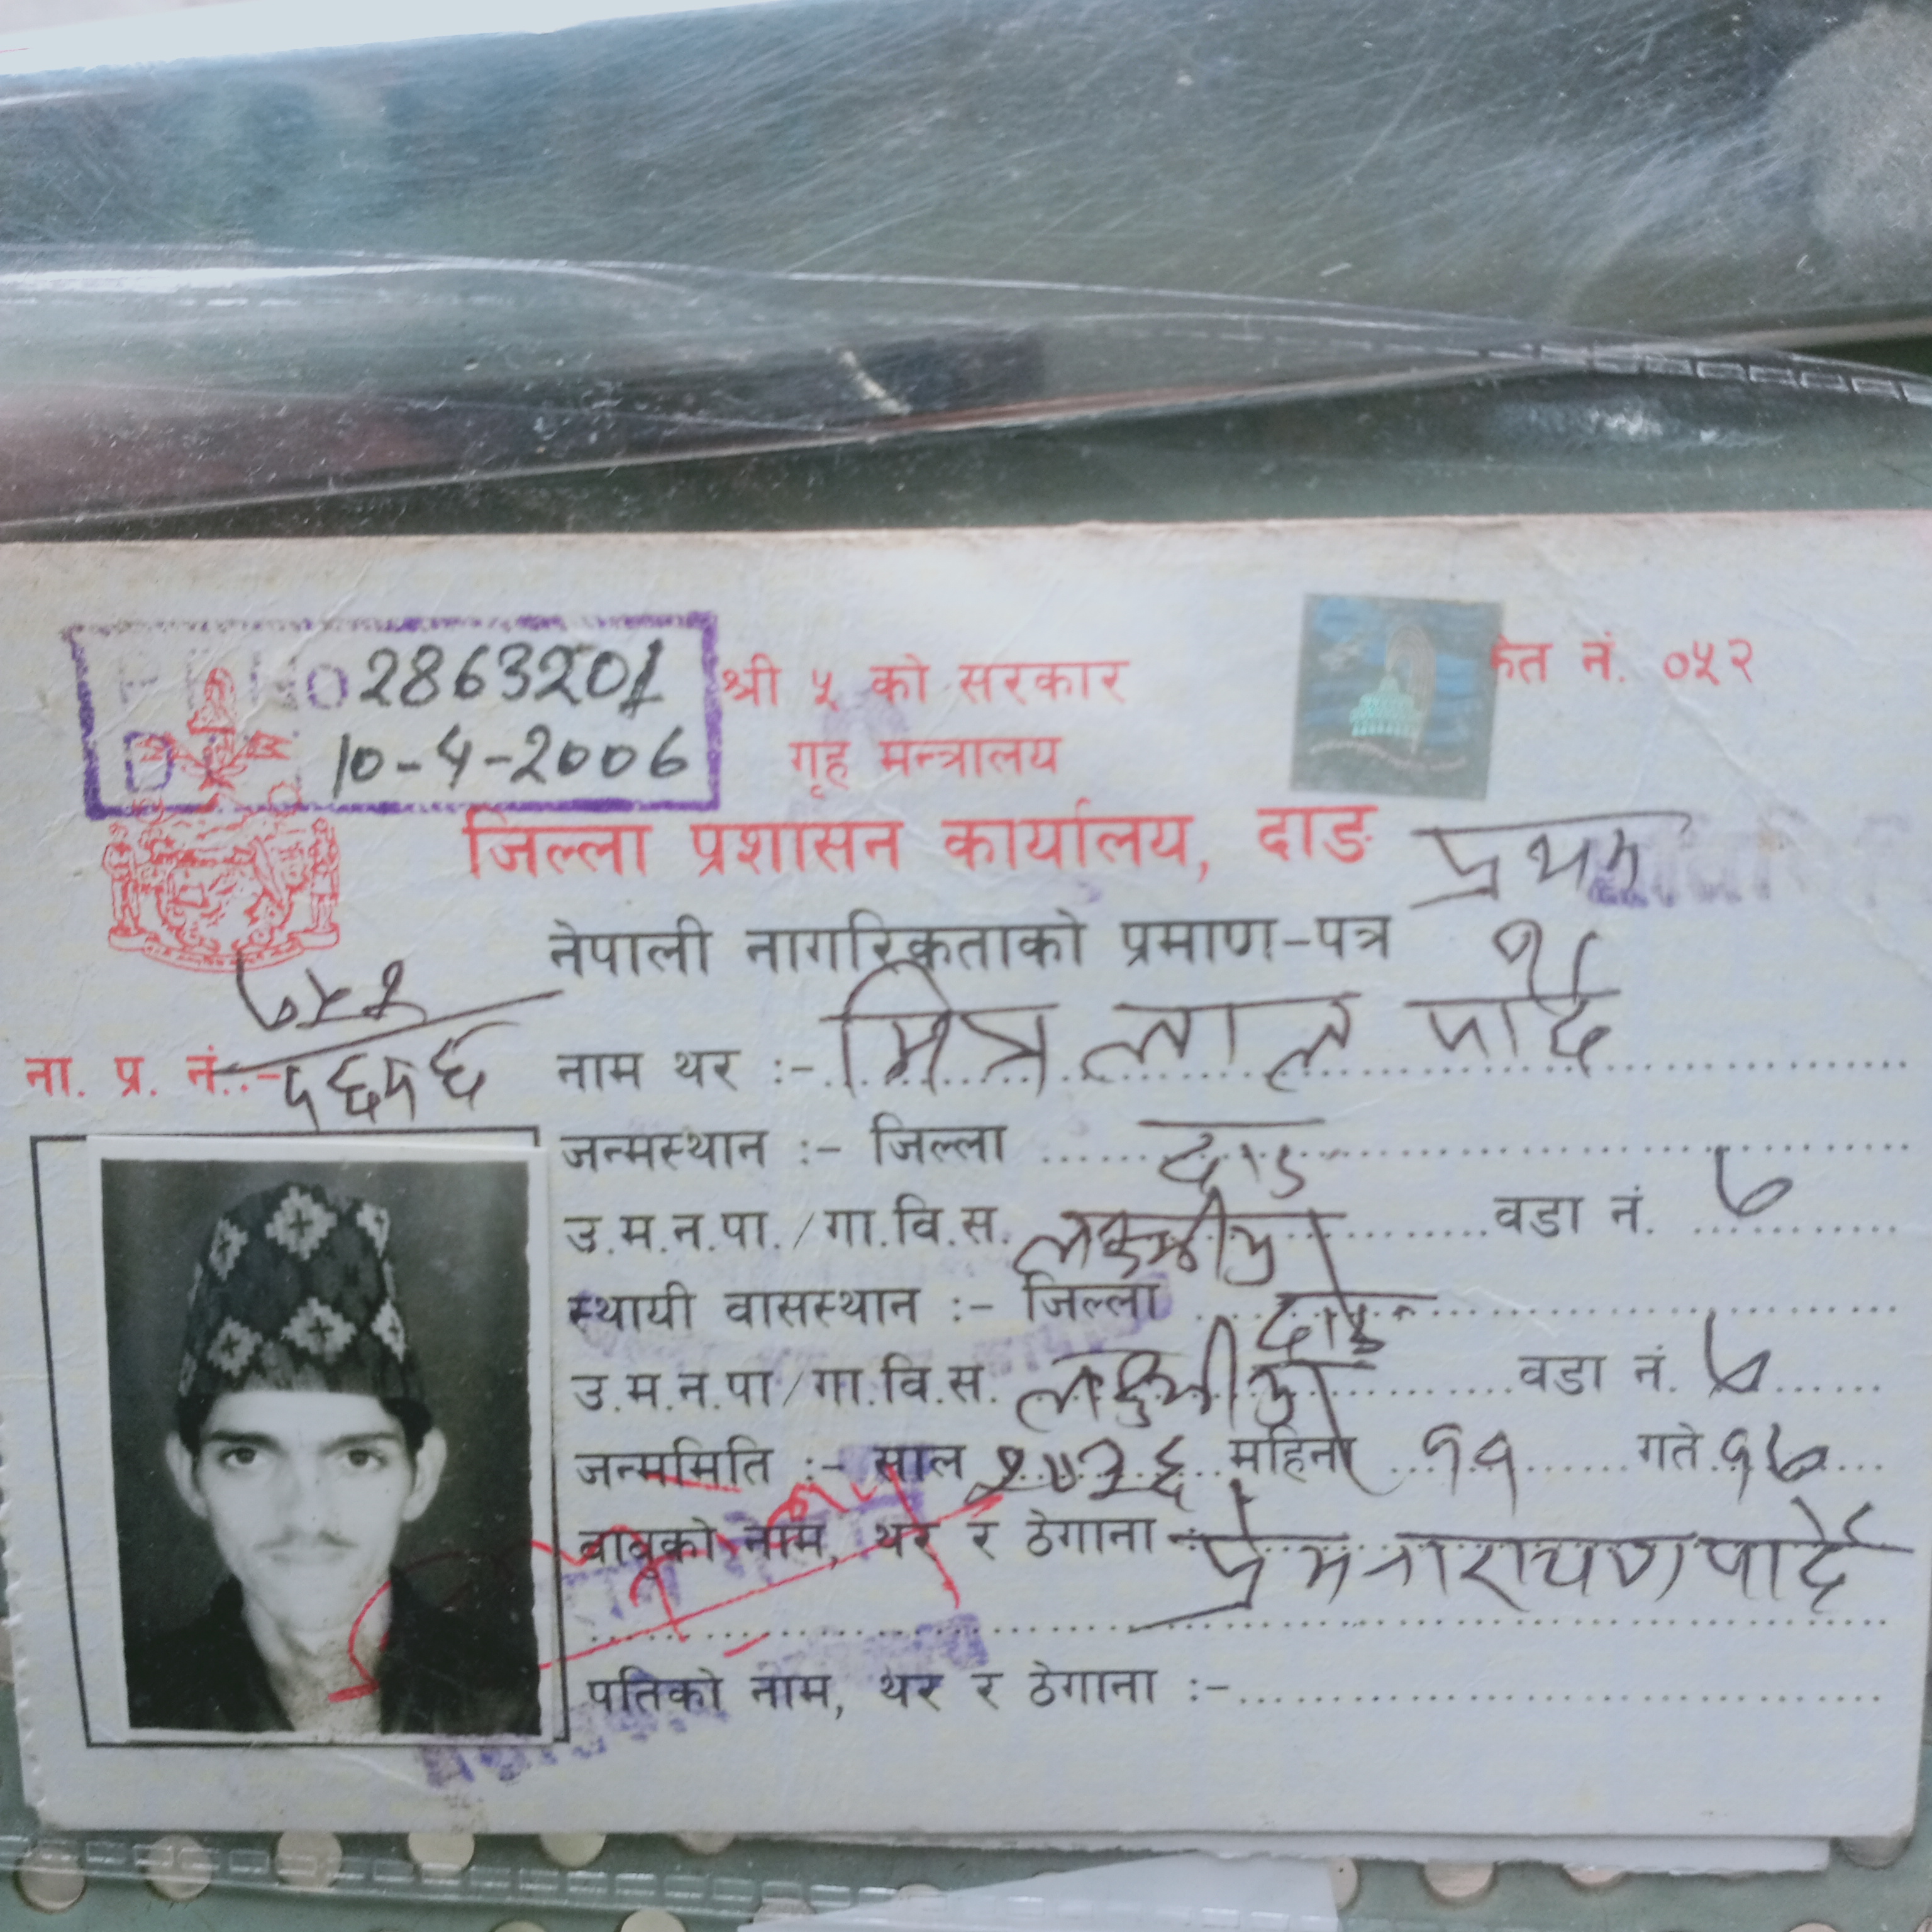 No 2863201
D 10-4-2006
श्री ५ को सरकार
केत नं. ०५२
गृह मन्त्रालय
जिल्ला प्रशासन कार्यालय, दाङ
प्रथम
नेपाली नागरिकताको प्रमाण-पत्र
ना. प्र. नं.:-
नाम थर :- मित्र लाल
जन्मस्थान :- जिल्ला दाङ
उ.म.न.पा./गा.वि.स. लक्ष्मीपुर वडा नं. ७
स्थायी वासस्थान :- जिल्ला दाङ
उ.म.न.पा/गा.वि.स. लक्ष्मीपुर वडा नं. ७
जन्ममिति :- साल २०३६ महिना ११ गते १७
बाबुको नाम, थर र ठेगाना प्रेमनारायण
पतिको नाम, थर र ठेगाना :-